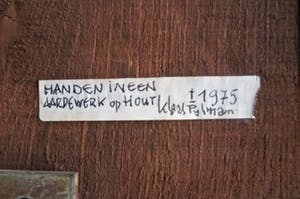 HANDEN INEEN
AARDEWERK op HOUT Klaas Pylman ± 1975